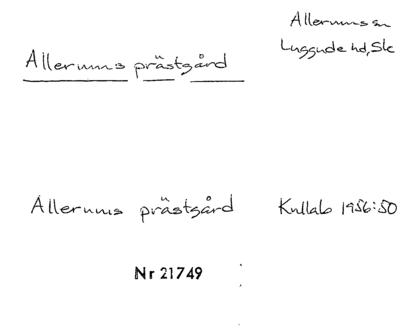 Allerums sn
Luggude hd, Sk
Allerums prästgård
Allerums prästgård
Kullab 1956:50
Nr 21749